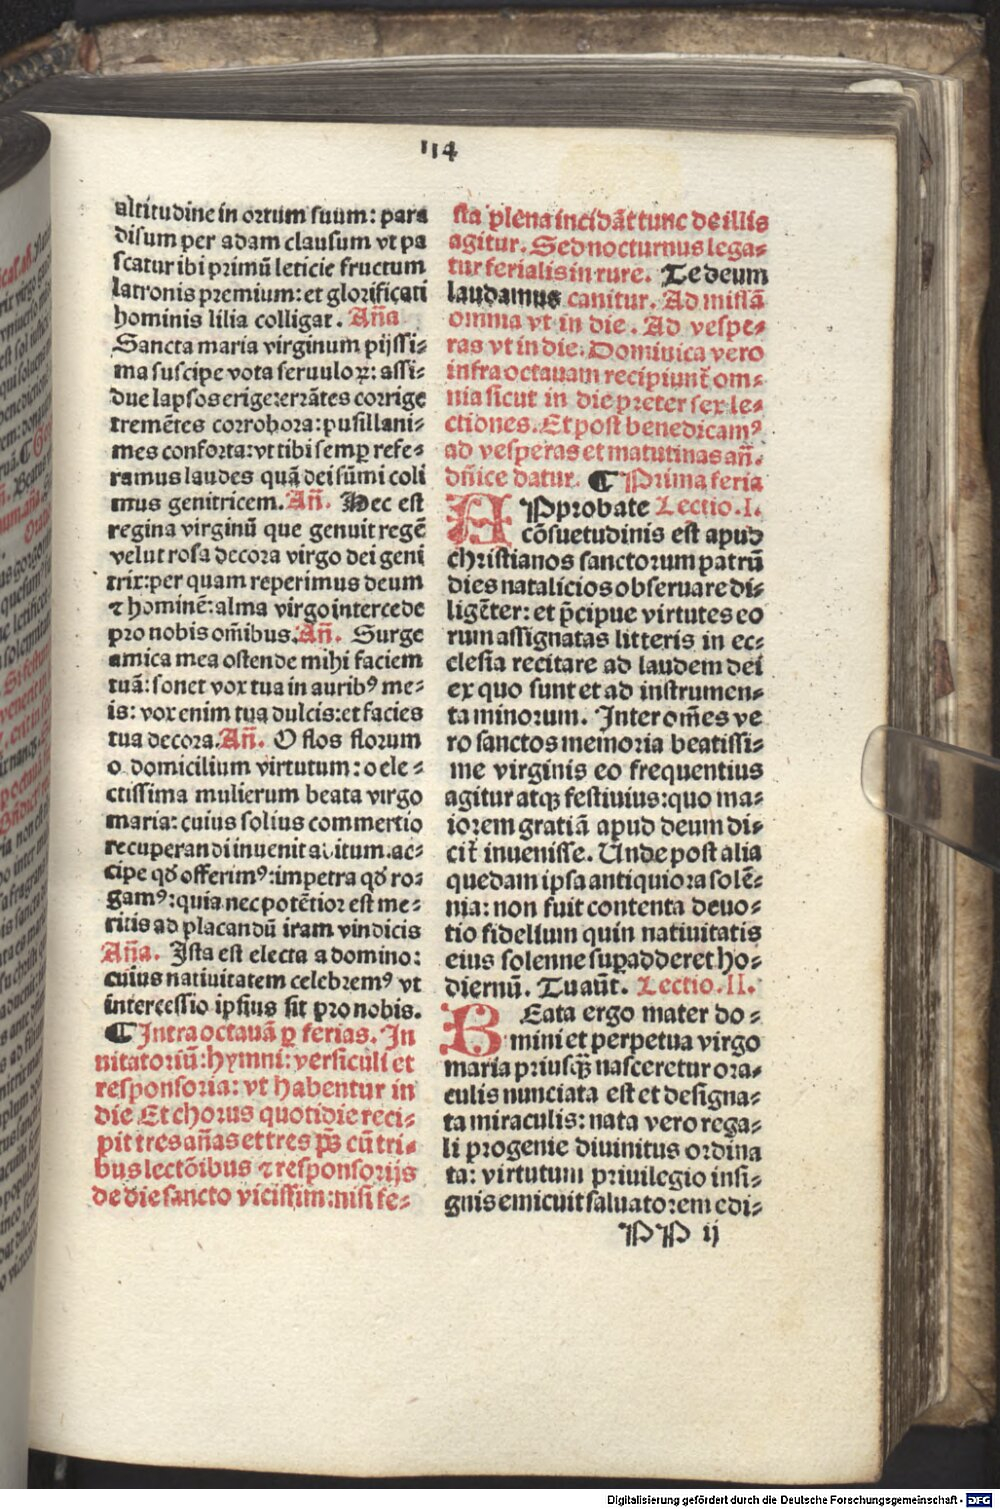 114
altitudine in ortum suum: para
disum per adam clausum vt pa
scatur ibi primū leticie fructum
latronis premium: et glorificati
hominis lilia colligat. Aña
Sancta maria virginum pijssi⸗
ma suscipe vota seruuloꝝ: assi⸗
due lapsos erige: errātes corrige
tremētes corrobora: pusillani⸗
mes conforta: vt tibi semꝑ refe⸗
ramus laudes quā dei sūmi coli
mus genitricem. Añ. Hec est
regina virginū que genuit regē
velut rosa decora virgo dei geni
trix: per quam reperimus deum
⁊ hominē: alma virgo intercede
pro nobis om̄ibus. Añ. Surge
amica mea ostende mihi faciem
tuā: sonet vox tua in auribꝰ me⸗
is: vox enim tua dulcis: et facies
tua decora. Añ. O flos florum
o domicilium virtutum: o ele⸗
ctissima mulierum beata virgo
maria: cuius solius commertio
recuperandi inuenit aditum. ac⸗
cipe qđ offerimꝰ: impetra qđ ro⸗
gamꝰ: quia nec potētior est me⸗
ritis ad placandū iram vindicis
Aña. Ista est electa a domino:
cuius natiuitatem celebremꝰ vt
intercessio ipsius sit pro nobis.
¶ Intra octauā ꝑ ferias. In
nitatoriū: hymni: versiculi et
responsoria: vt habentur in
die Et chorus quotidie reci⸗
pit tres añas et tres ps̄ cū tri⸗
bus lectōibus ⁊ responsorijs
de die sancto vicissim: nisi fe⸗
sta plena incidāt tunc de illis
agitur. Sed nocturnus lega⸗
tur ferialis in rure. Te deum
laudamus canitur. Ad missā
omnia vt in die. Ad vespe⸗
ras vt in die. Dominica vero
infra octauam recipiunt̄ om⸗
nia sicut in die preter sex le⸗
ctiones. Et post benedicamꝰ
ad vesperas et matutinas añ.
dn̄ice datur. ¶ Prima feria
APprobate Lectio. I.
cōsuetudinis est apud
christianos sanctorum patrū
dies natalicios obseruare di⸗
ligēter: et p̄cipue virtutes eo
rum assignatas litteris in ec⸗
clesia recitare ad laudem dei
ex quo sunt et ad instrumen⸗
ta minorum. Inter om̄es ve
ro sanctos memoria beatissi⸗
me virginis eo frequentius
agitur atqꝫ festiuius: quo ma⸗
iorem gratiā apud deum di⸗
cit̄ inuenisse. Unde post alia
quedam ipsa antiquiora solē⸗
nia: non fuit contenta deuo⸗
tio fidelium quin natiuitatis
eius solenne suꝑadderet ho⸗
diernū. Tu aūt. Lectio. II.
BEata ergo mater do⸗
mini et perpetua virgo
maria priusqꝫ nasceretur ora⸗
culis nunciata est et designa⸗
ta miraculis: nata vero rega⸗
li progenie diuinitus ordina
ta: virtutum priuilegio insi⸗
gnis emicuit saluatorem edi⸗
PP ij
Digitalisierung gefördert durch die Deutsche Forschungsgemeinschaft - DFG